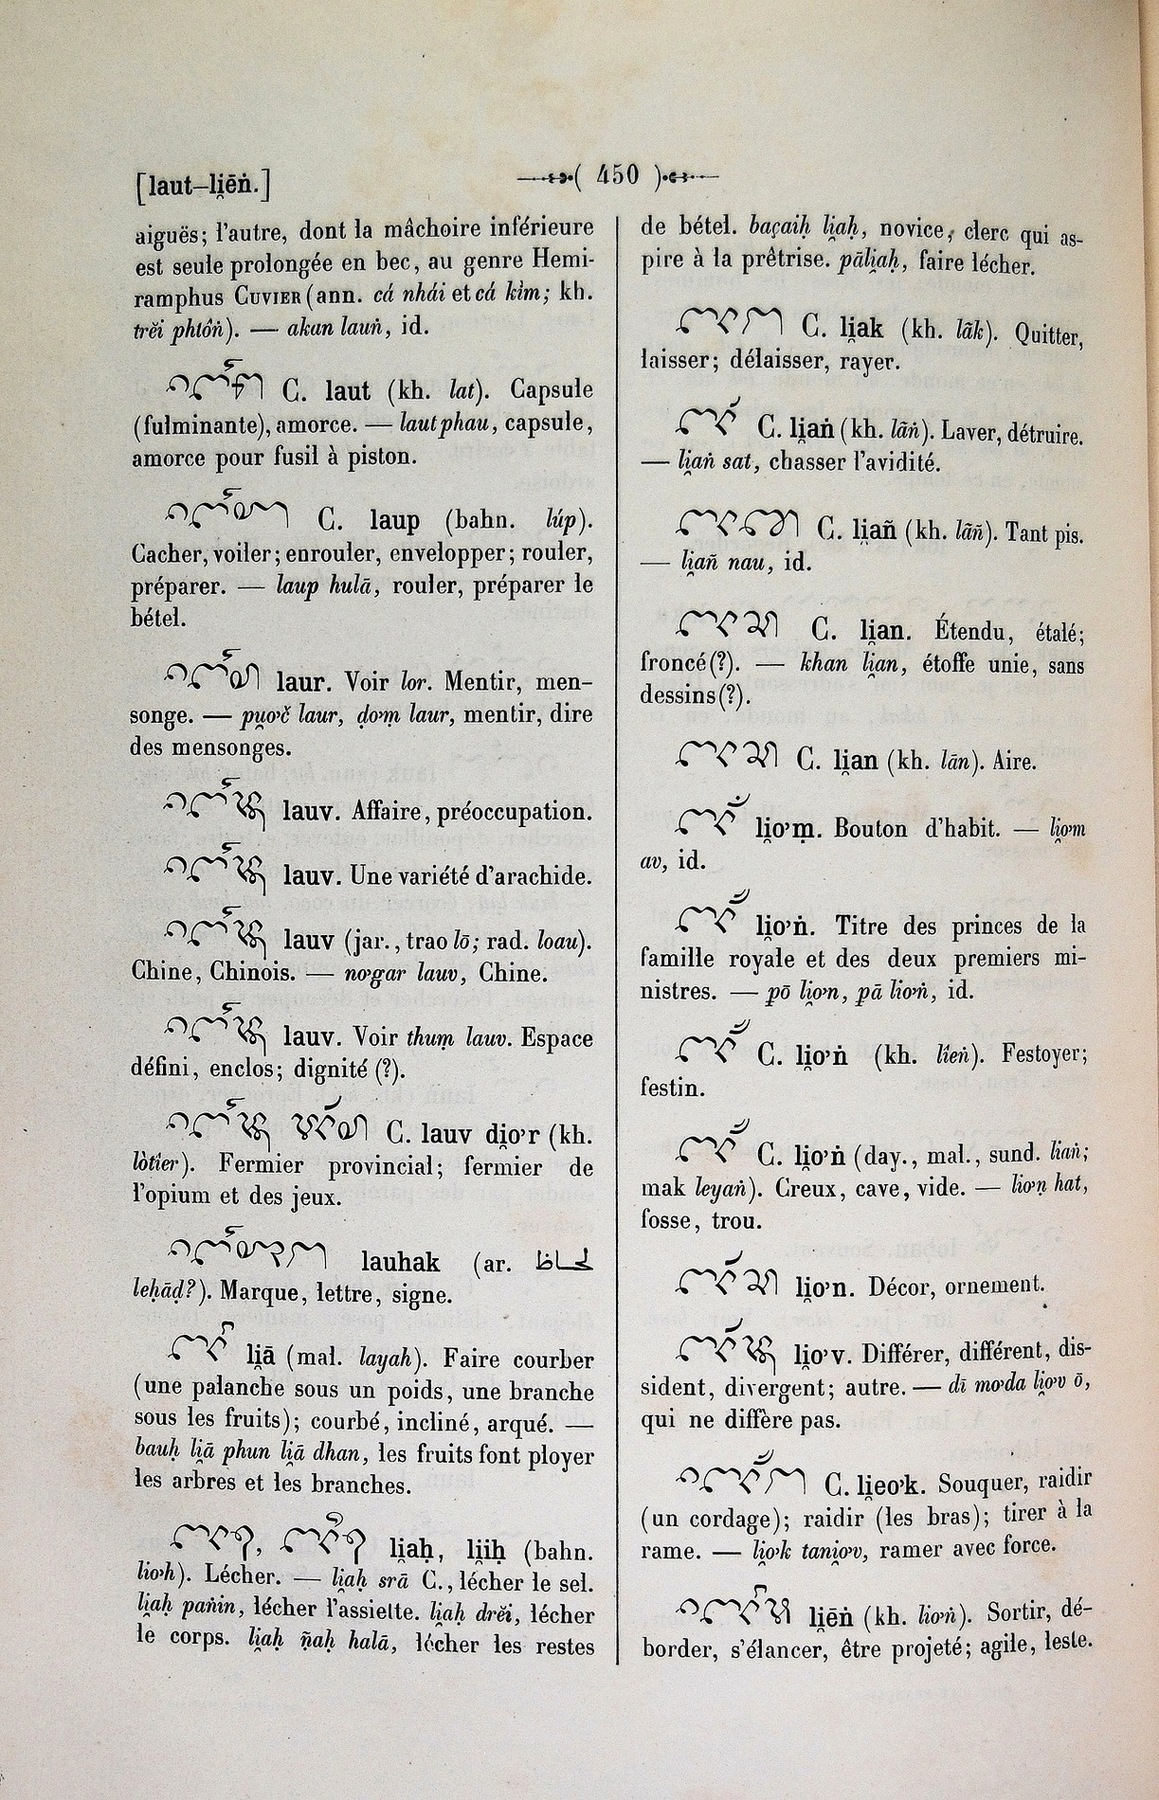 [laut–li̯ēṅ.]
( 450 )
aiguës; l'autre, dont la mâchoire inférieure
est seule prolongée en bec, au genre Hemi-
ramphus CUVIER (ann. cá nhái et cá kìm; kh.
trĕi phtôṅ). — akan lauṅ, id.
C. laut (kh. lat). Capsule
(fulminante), amorce. — laut phau, capsule,
amorce pour fusil à piston.
C. laup (bahn. lúp).
Cacher, voiler; enrouler, envelopper; rouler,
préparer. — laup hulā, rouler, préparer le
bétel.
laur. Voir lor. Mentir, men-
songe. — pu̯o'č laur, ḍo'ṃ laur, mentir, dire
des mensonges.
lauv. Affaire, préoccupation.
lauv. Une variété d'arachide.
lauv (jar., trao lō; rad. loau).
Chine, Chinois. — no'gar lauv, Chine.
lauv. Voir thuṃ lauv. Espace
défini, enclos; dignité (?).
C. lauv di̯o'r (kh.
lòtîer). Fermier provincial; fermier de
l'opium et des jeux.
lauhak (ar.
leḥāḍ?). Marque, lettre, signe.
li̯ā (mal. layah). Faire courber
(une palanche sous un poids, une branche
sous les fruits); courbé, incliné, arqué. —
bauḥ li̯ā phun li̯ā dhan, les fruits font ployer
les arbres et les branches.
li̯aḥ, li̯iḥ (bahn.
lio'h). Lécher. — li̯aḥ srā C., lécher le sel.
li̯aḥ paṅin, lécher l'assiette. li̯aḥ drĕi, lécher
le corps. li̯aḥ ñaḥ halā, lécher les restes
de bétel. baçaiḥ li̯aḥ, novice, clerc qui as-
pire à la prêtrise. pāli̯aḥ, faire lécher.
C. li̯ak (kh. lāk). Quitter,
laisser; délaisser, rayer.
C. li̯aṅ (kh. lāṅ). Laver, détruire.
— li̯aṅ sat, chasser l'avidité.
C. li̯añ (kh. lāñ). Tant pis.
— li̯añ nau, id.
C. li̯an. Étendu, étalé;
froncé (?). — khan li̯an, étoffe unie, sans
dessins (?).
C. li̯an (kh. lān). Aire.
li̯o'ṃ. Bouton d'habit. — li̯o'm
av, id.
li̯o'ṅ. Titre des princes de la
famille royale et des deux premiers mi-
nistres. — pō li̯o'n, pā lio'ṅ, id.
C. li̯o'ṅ (kh. lîeṅ). Festoyer;
festin.
C. li̯o'ṅ (day., mal., sund. liaṅ;
mak leyaṅ). Creux, cave, vide. — lio'ṇ hat,
fosse, trou.
li̯o'n. Décor, ornement.
li̯o'v. Différer, différent, dis-
sident, divergent; autre. — dī mo'da li̯o'v ō,
qui ne diffère pas.
C. li̯eo'k. Souquer, raidir
(un cordage); raidir (les bras); tirer à la
rame. — li̯o'k tani̯o'v, ramer avec force.
li̯ēṅ (kh. lio'ṅ). Sortir, dé-
border, s'élancer, être projeté; agile, leste.